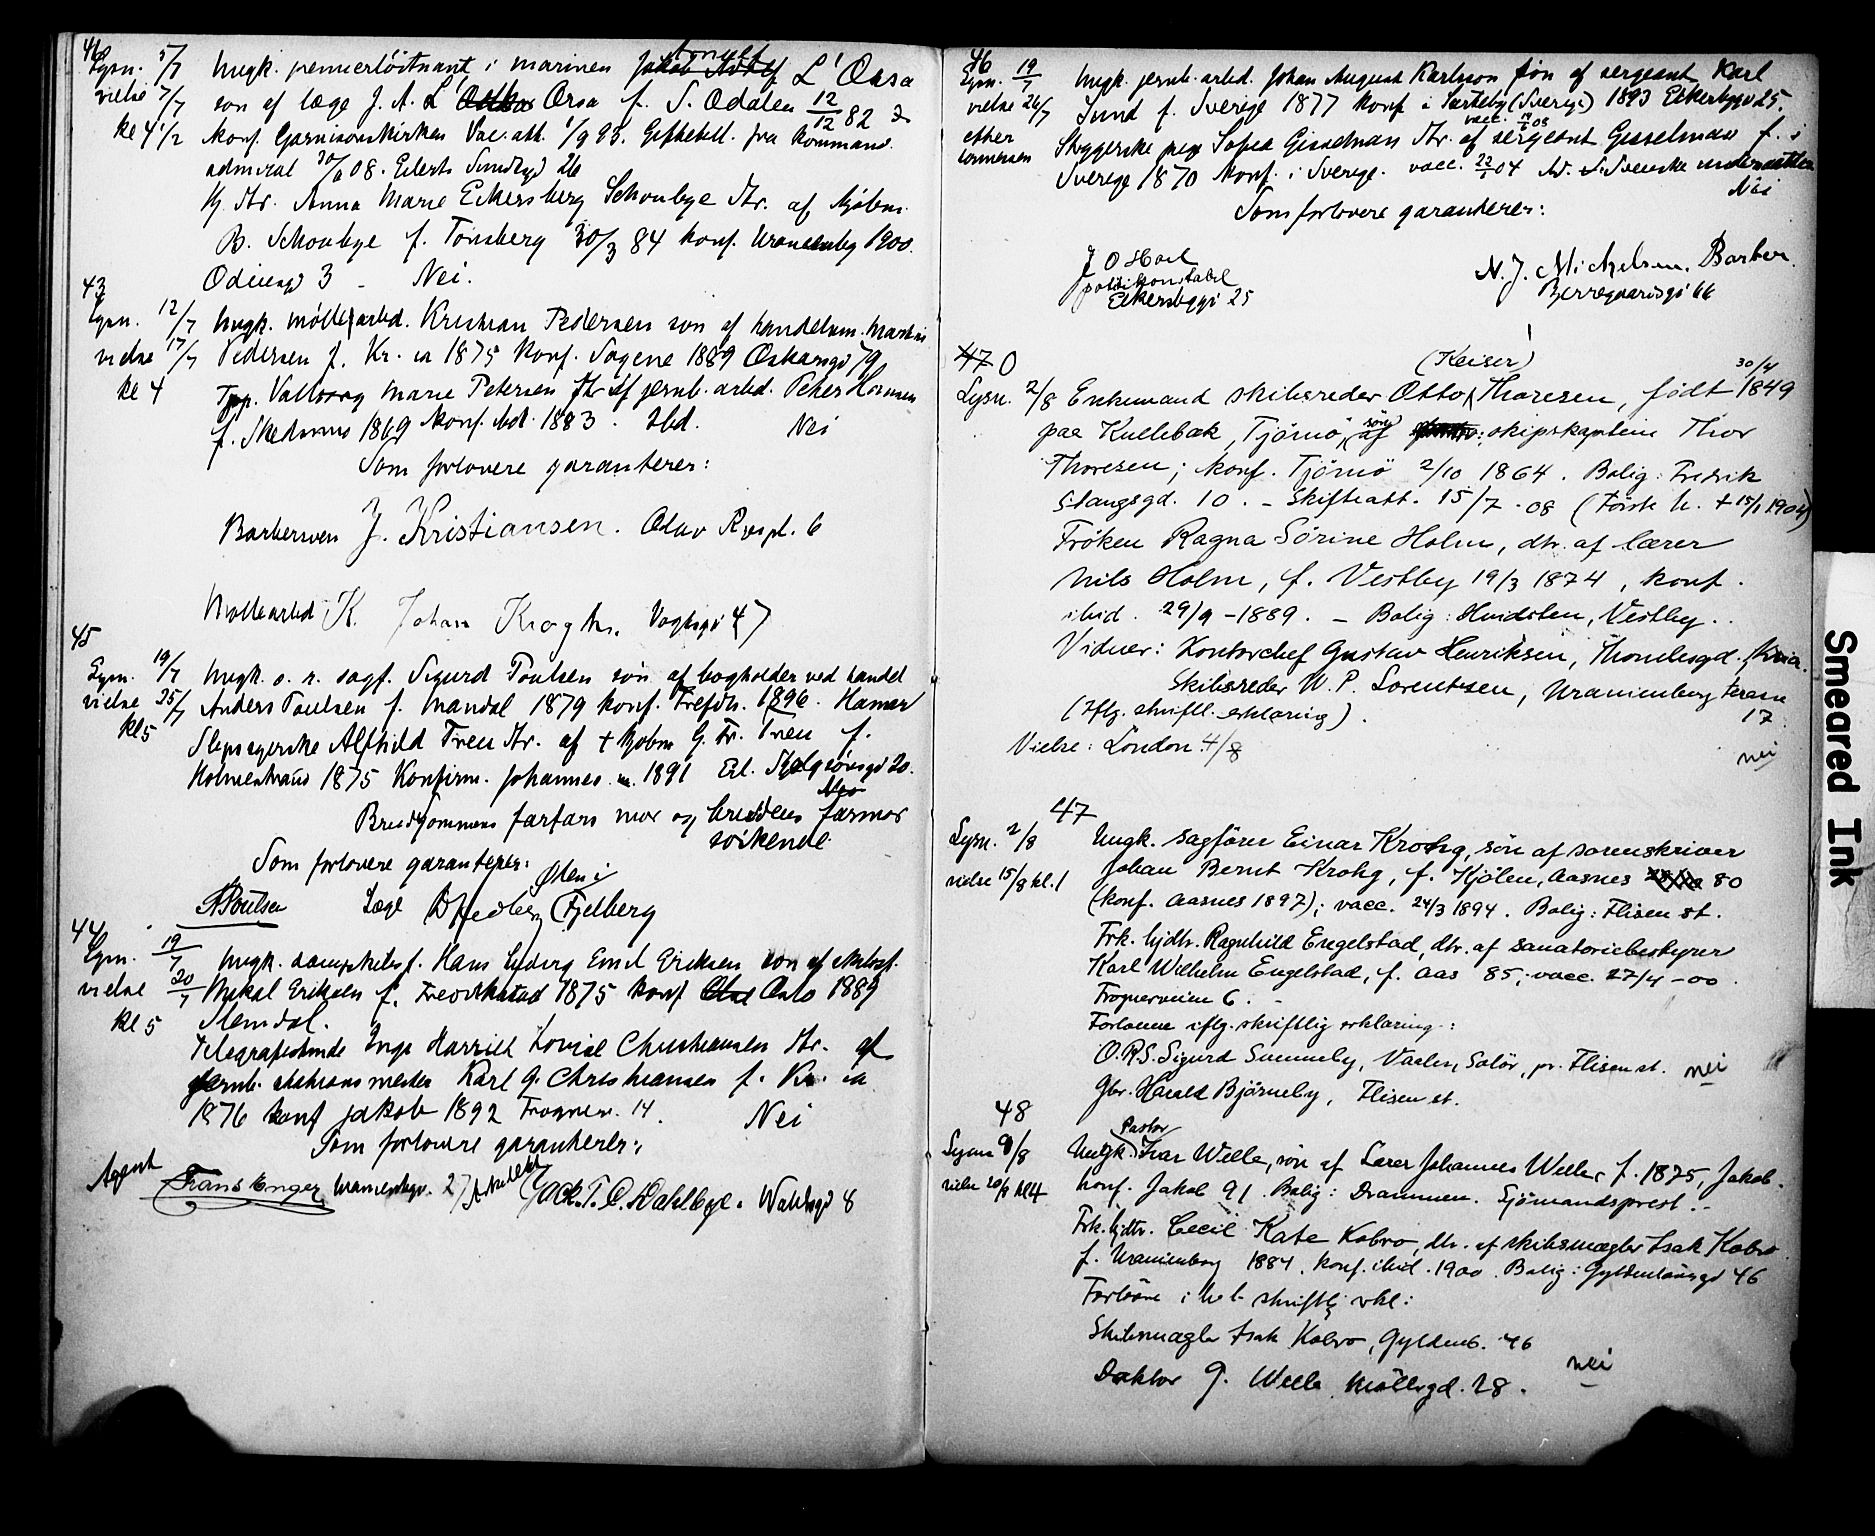 Lysn. 5/7 Ungk. premierløitnant i marinen L'Orsa
vielse 7/7 søn af læge J. A. L' Orsa f. S. Odalen 12/12 82
kl 4 1/2 konf. Garnisonskirken Vac. att. 1/9 93. fra Komman.
admiral 08. Eilert Sundtsgd 26
Hj. dtr. Anna Marie Eckersberg Schoubye dtr. af kjøbm.
B. Schoubye f. Tønsberg 30/3 84 konf. Uranienbg 1900.
Odinsgd 3 - Nei.
43
Lysn. 12/7 Ungk. møllearbd. Kristian Pedersen søn af handelsm. Martin
vielse 17/7 Pedersen f. Kr.ia 1875 konf. Sagene 1889 Oskarsgd 79
kl 4 Tjp. Valborg Marie Petersen dtr af jernb. arbd. Peter
f. Skedsmo 1869 konf. 1883. Ibd. Nei
Som forlovere garanterer:
Barbersven J. Kristiansen. Olav Ryespl. 6
Møllearbd K. Johan Krogh. Vogtsgd 47
45
Lysn. 19/7 Ungk. o. r. sagf. Sigurd Poulsen søn af bogholder ved handel
vielse 25/7 Anders Poulsen f. Mandal 1879 konf. Trefdh. 1896. Hamar
kl 5 Alfhild Tren dtr. af + kjøbm G. Fr. Tren f.
Holmestrand 1875 Konfirm. Johannes. 1891
Brudgommens farfars mor og brudens farmor
søskende
Som forlovere garanterer:
APoulsen Læge (Fjelberg)
44
Lysn. 19/7 Ungk. dampskibsf. Hans Lyderg Emil Eriksen søn af skibsf.
vielse 20/7 Mikal Eriksen f. Fredrikstad 1875 konf Oslo 1889
kl 5 Slemdal.
Telegrafistinde Inga Harriet Lovise Christiansen dtr. af
jernb. stationsmester Karl G. Christiansen f. Kr.ia
1876 konf Jakob 1892 Frognerv. 14. Nei
Som forlovere garanterer:
Agent Frans Enger Uranienbgv. 27 Dahlbye. Waldsgd 8
46
Lysn. 19/7 Ungk. jernb. arbd. Johan August Karlsson søn af sergeant Karl
vielse 26/7 Lund f. Sverige 1877 konf i (Sverige) 1893 Eckersbggd 25.
efter vacc. 08
Skyggerske Sofia Gisselman dtr. af sergeant Gisselman f. i
Sverige 1870 konf. i Sverige. vacc. 22/1 04
Nei
Som forlovere garanterer:
J O Hoel
politikonstabel
Eckersbggd 25
N. J. Michelsen. Barber
Berregaardsgd 66
47 0 (Keiser) 30/4
Lysn. 2/8 Enkemand skibsreder Otto Thoresen, født 1849
paa Kullebæk, Tjømø, søn af skipskaptein Thor
Thoresen; konf. Tjømø 2/10 1864. Bolig: Fredrik
Stangsgd. 10. - Skifteatt. 15/7 - 08 (Første h. + 15/1 1904)
Frøken Ragna Sørine Holm, dtr. af lærer
Nils Holm, f. Vestby 19/3 1874, konf.
ibid. 29/9 - 1889. - Bolig: Hvidsten, Vestby.
Vidner: Kontorchef Gustav Henriksen, Thomlesgd. Kria.
Skibsreder W. P. Lorentzen, Uranienborg terasse
17.
(Iflg. skriftl. erklæring).
Vielse: London 4/8
nei
47
Lysn. 2/8 Ungk. sagfører Einar Krohg, søn af sorenskriver
vielse 15/8 kl. 1 Johan Bernt Krohg, f. Kjølen, Aasnes 80
(konf. Aasnes 1897); vacc. 24/3 1894. Bolig: Flisen st.
Frk. hjdtr. Ragnhild Engelstad, dtr. af sanatoriebestyrer
Karl Wilhelm Engelstad, f. Aas 85; vacc. 27/4 - 00.
Frognerveien 6. -
Forlovere iflg. skriftlig erklæring:
O.R.S. Sigurd Sunneby, Vaaler, Solør, pr. Flisen st. nei
Gbr. Harald Bjørneby, Flisen st.
48
Pastor
Lysn 9/8 Ungk. Ivar Welle, søn af Lærer Johannes Welle, f. 1875, Jakob.
vielse 20/8 kl 4 konf. Jakob 91. Bolig: Drammen. Sjømandsprest. -
Frk. hjdtr. Cecil Kate Kobro, dtr. af skibsmægler Isak Kobro
f. Uranienborg 1884. konf. ibid. 1900. Bolig: Gyldenløvesgd 46
Forlovere i h. t. skriftlig erkl:
Skibsmægler Isak Kobro, Gyldenl. 46
Doktor G. Welle Møllergd. 28. nei
Smeared Ink